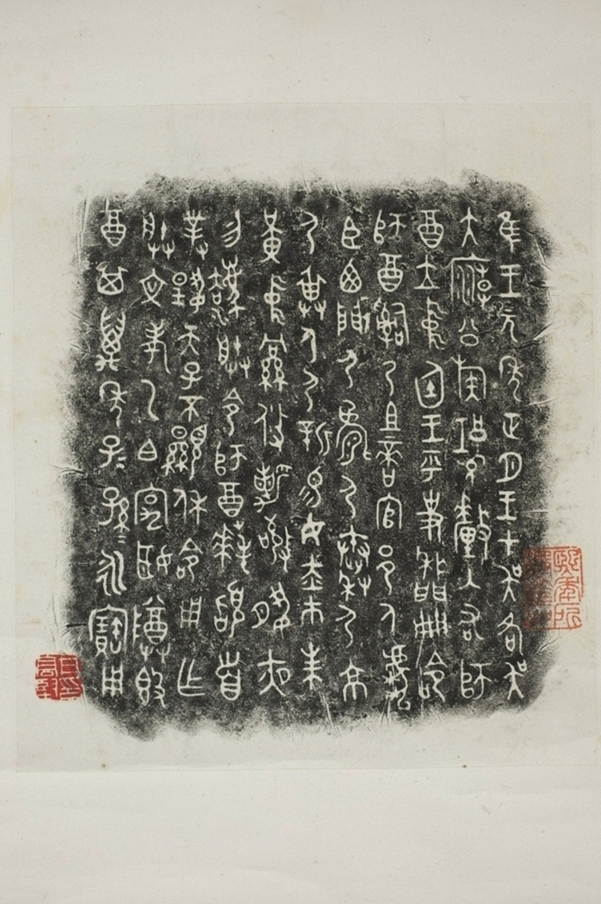 隹王元年正月王才吳各吳
大廟公族釐入右師
酉立中廷王乎史冊命
師酉𤔲乃且啻官邑人虎
臣西門尸尸秦尸京
尸身尸新易女赤巿朱
黃中攸勒敬夙夜
勿灋朕令師酉拜首
對揚天子不顯休命用乍
朕文考乙白宄姬尊𣪘
酉其萬年子子孫孫永寶用